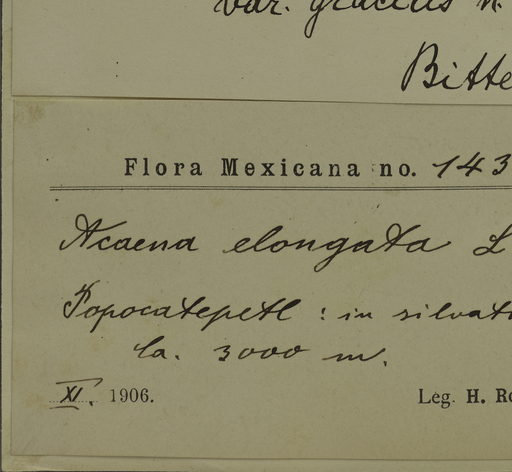 var. gracilis n.
Bitte
Flora Mexicana no. 143
Acaena elongata L
Popocatepetl : in silvati
ca. 3000 m.
XI. 1906.
Leg. H. Ro